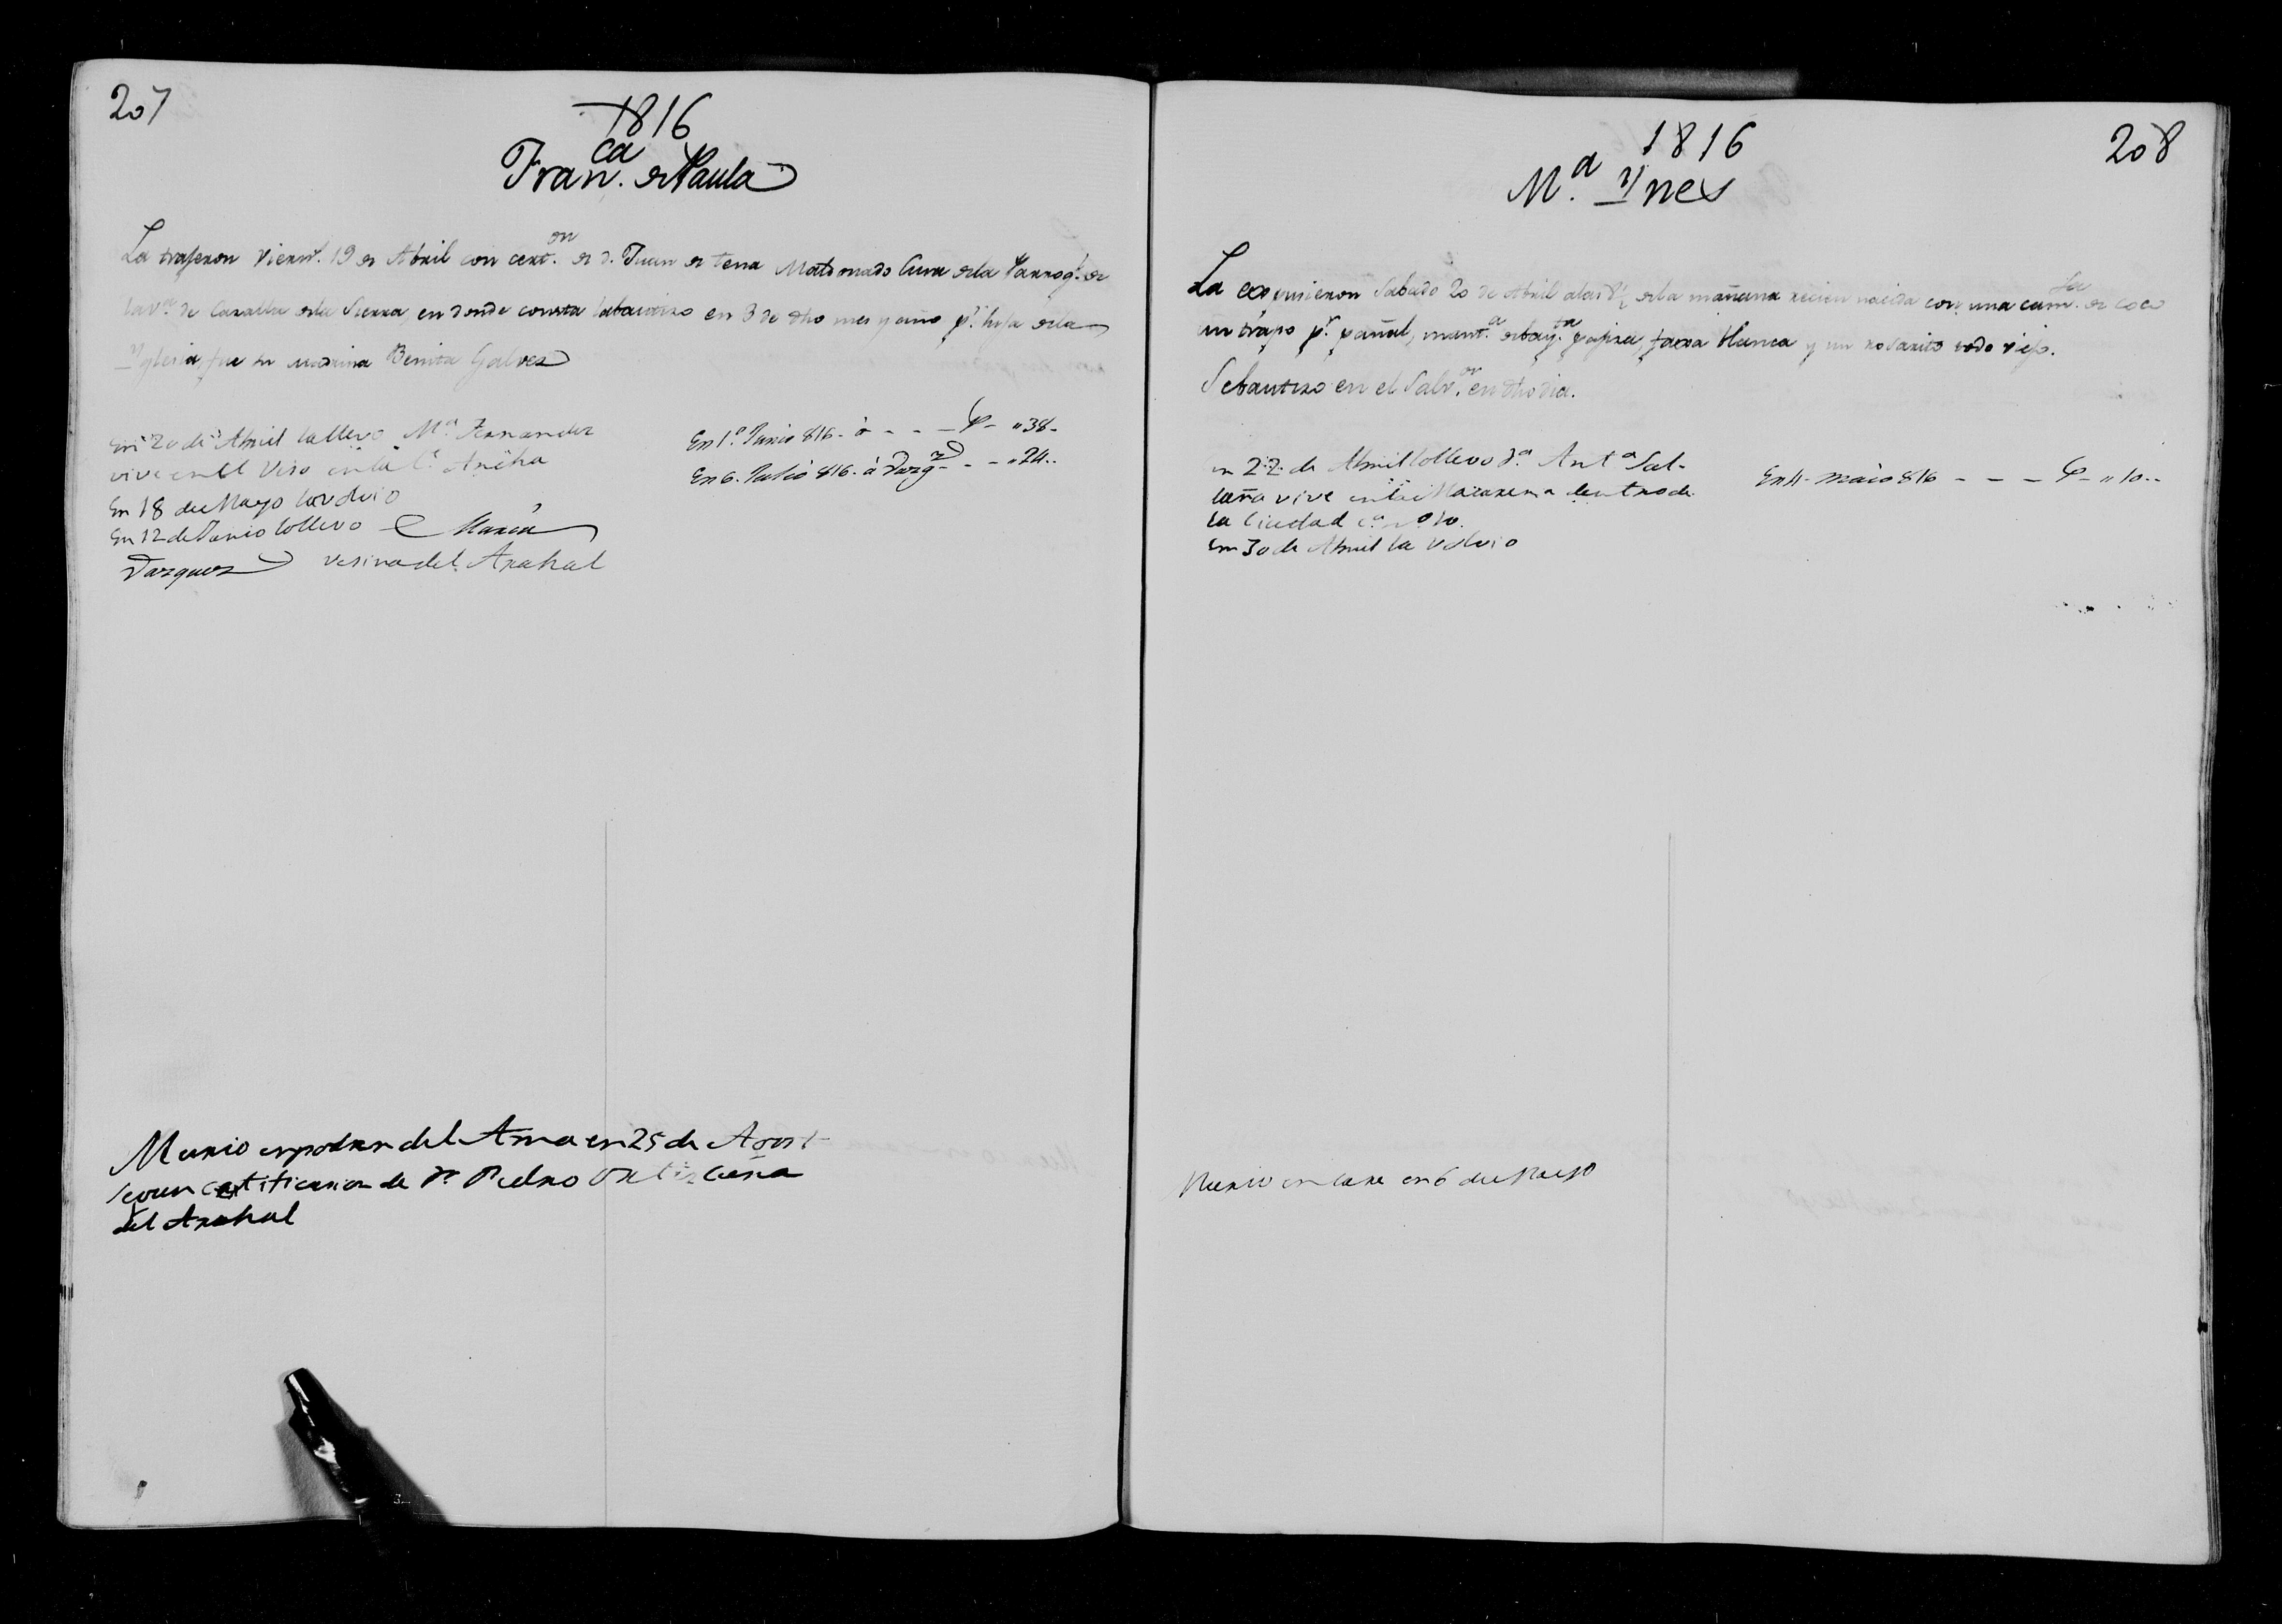 207
1816
Fran.ca de Paula
La trageron Viern.s 19 de Abril con cert.on de d. Juan de tena Maldonado Cura de la Parroq.l de
la V.a de Cazalla de la Sierra en donde consta la bautizo en 3 de dho mes y año p.r hija de la
Yglesia, fue su madrina Benita Galvez
En 20 de Abril la llevo M.a Fernandez
vive en el Viso en la C.e Ancha
En 18 de Mayo la volvio
En 12 de Junio la llevo Maria
Vazquez vesina del Arahal
En 1.o Junio 816. á - - - 38-
En 6. Julio 816. á Vazq.z - - - 24..
Murio en poder del Ama en 25 de Agost
segun certificasion de Dn Pedro Ortiz Cura
del Arahal
208
1816
M.a Ynes
La expusieron Sabado 20 de Abril a las de la mañana recien nacida con una cam.sa de coco
un trapo p.r pañal, mant.a de bay.ta pajiza, faxa blanca y un rosarito todo viejo.
Se bautizo en el Salv.or en dho dia.
en 22 de Abril la llevo D.a Ant.a Sal-
daña vive en la Macarena dentro de
la Ciudad c.a n.o 10.
En 30 de Abril la volvio
En 4- Maio 816 - - - 10..
Murio en casa en 6 de Mayo